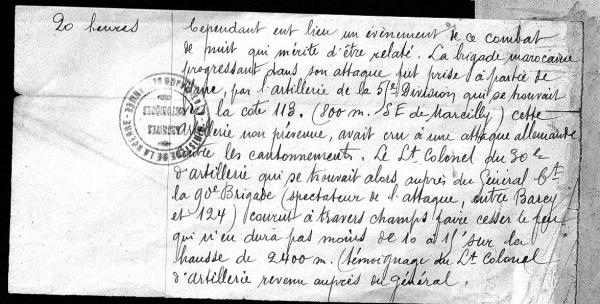 20 heures
Cependant eut lieu un évènement de ce combat
de nuit qui mérite d'être relaté. La brigade marocaine
progressant dans son attaque fut prise à partie de
par l'artillerie de la 5 Division qui se trouvait
la côte 113. (800 m. SE de Marcilly) cette
artillerie non prévenue, avait cru à une attaque allemande
les cantonnements. Le Lt Colonel du 30e
d'artillerie qui se trouvait alors auprès du Général Ct
la 90e Brigade (spectateur de l'attaque, entre Barcy
et 124) courut à travers champs faire cesser le feu
qui n'en dura pas moins de 10 à 15' sur la
hausse de 2400 m. (témoignage du Lt Colonel
d'Artillerie revenu auprès du général.
MINISTÈRE DE LA GUERRE